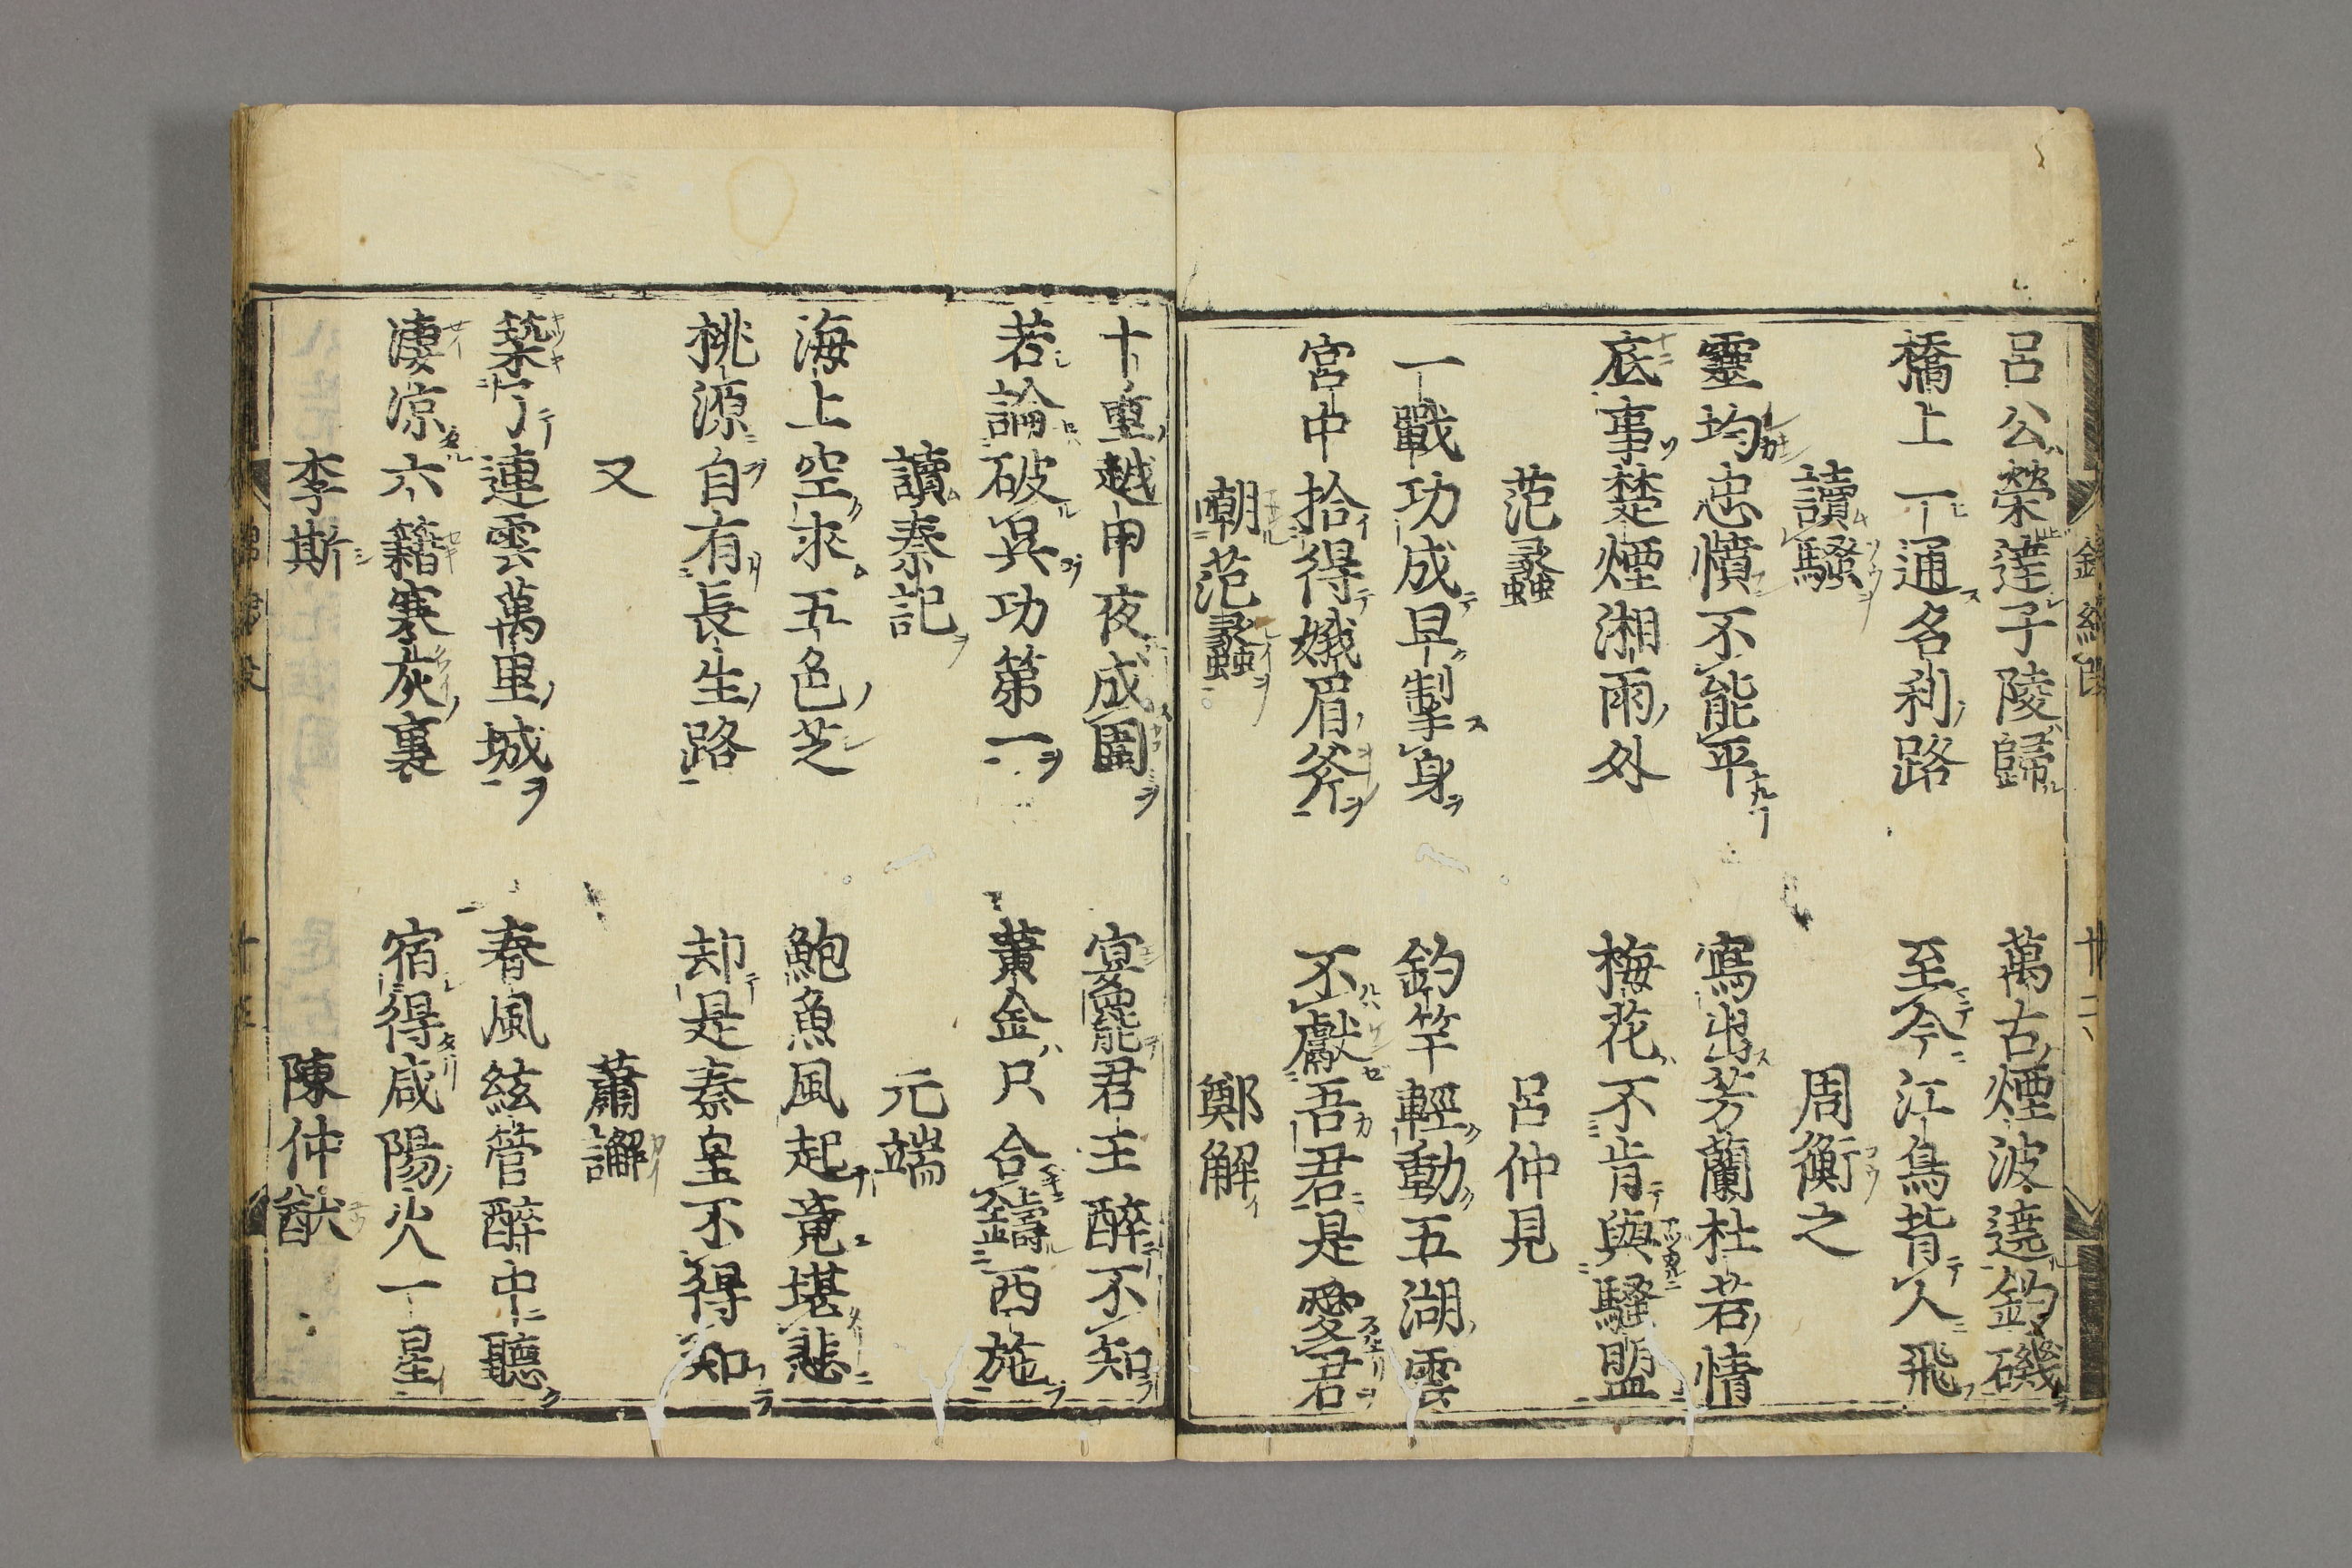 呂公榮達子陵歸 萬古煙波遶釣磯
橋上一通名利路 至今江鳥背人飛
讀騷 周衡之
靈均忠憤不能平 寫出芳蘭杜若情
底事楚煙湘雨外 梅花不肯與騷盟
范蠡 呂仲見
一戰功成早掣身 釣竿輕動五湖雲
宮中拾得娥眉斧 不獻吾君是愛君
嘲范蠡 鄭解
十重越甲夜成圍 宴罷君王醉不知
若論破吳功第一 黃金只合鑄西施
讀秦記 元端
海上空求五色芝 鮑魚風起竟堪悲
桃源自有長生路 却是秦皇不得知
又 蕭澥
築了連雲萬里城 春風絃管醉中聽
凄凉六籍寒灰裏 宿得咸陽火一星
李斯 陳仲猷